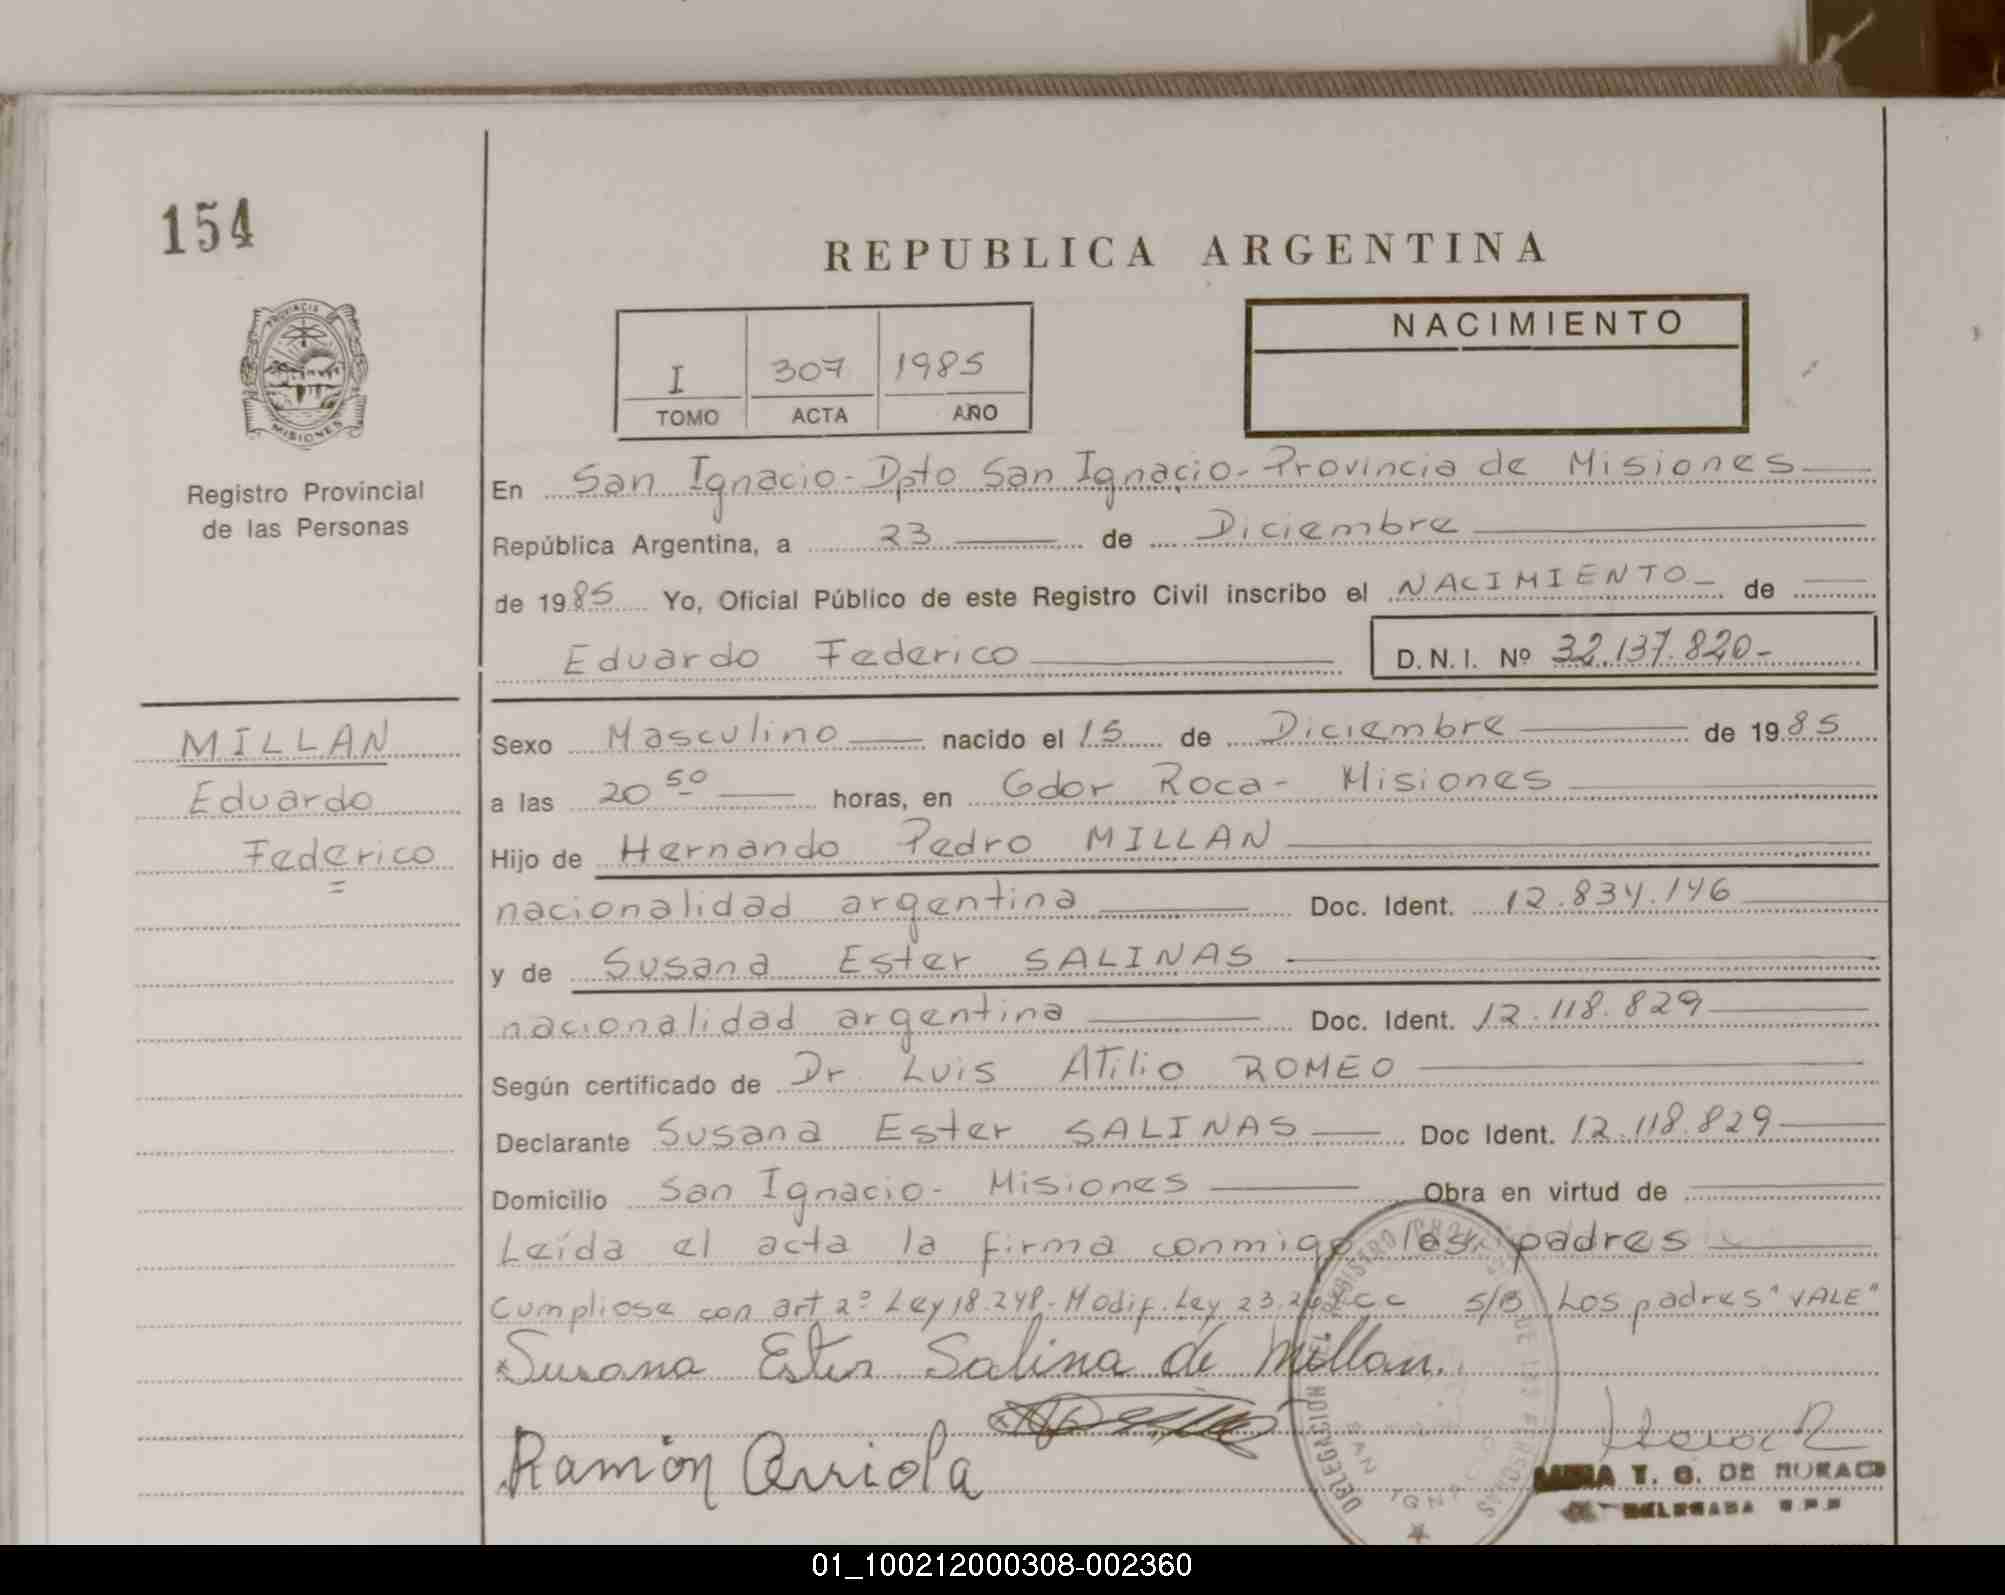 154
REPUBLICA ARGENTINA
PROVINCIA
MISIONES
Registro Provincial
de las Personas
I 307 1985
TOMO ACTA AÑO
NACIMIENTO
En San Ignacio - Dpto San Ignacio - Provincia de Misiones
República Argentina, a 23 de Diciembre
de 1985 Yo, Oficial Público de este Registro Civil inscribo el NACIMIENTO de
Eduardo Federico D.N.I. Nº 32.137.820-
MILLAN
Eduardo
Federico
Sexo Masculino nacido el 15 de Diciembre de 1985
a las 20 50 horas, en Gdor Roca - Misiones
Hijo de Hernando Pedro MILLAN
nacionalidad argentina Doc. Ident. 12.834.146
y de Susana Ester SALINAS
nacionalidad argentina Doc. Ident. 12.118.829
Según certificado de Dr. Luis Atilio ROMEO
Declarante Susana Ester SALINAS Doc Ident. 12.118.829
Domicilio San Ignacio - Misiones Obra en virtud de
Leída el acta la firma conmigo los padres
Cumpliose con art 2º Ley 18.248 - Modif. Ley 23. S/B Los padres "VALE"
Susana Ester Salina de Millan.
Ramón Arriola
DELEGACION REGISTRO DE LAS PERSONAS
SAN IGNACIO
T. G. DE MORACE
DELEGADA R.P.P
01_100212000308-002360